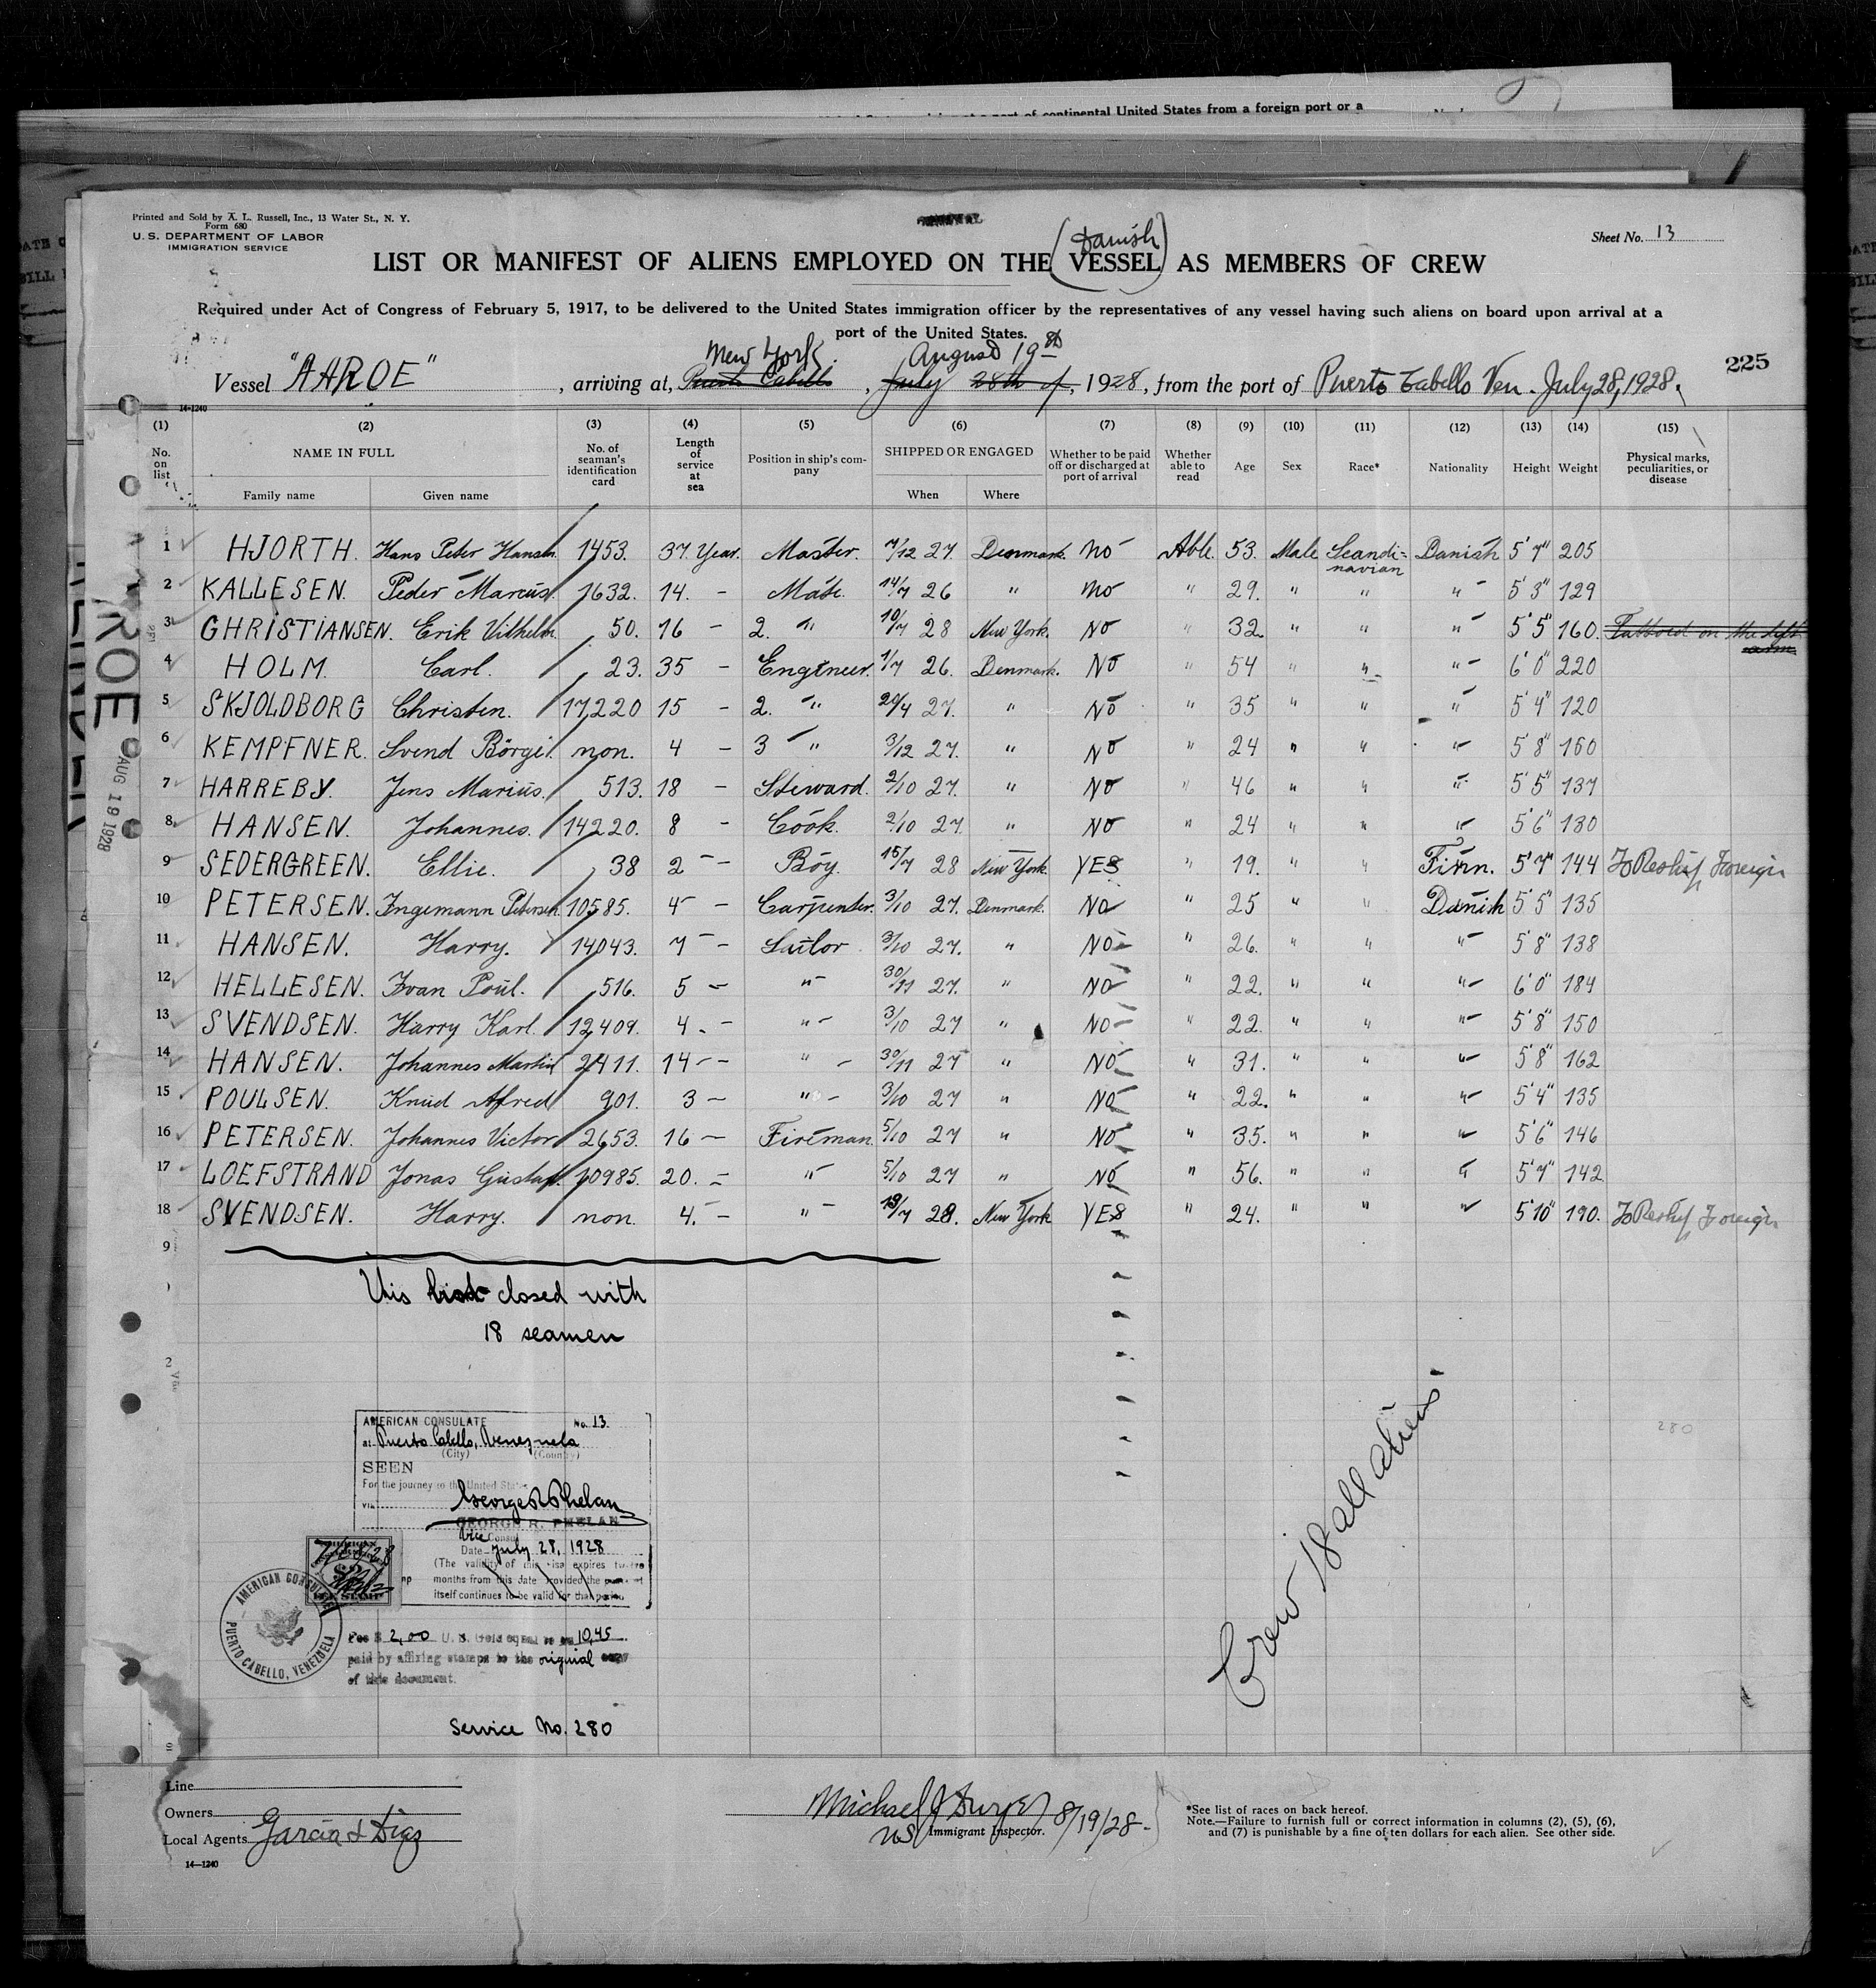 of continental United States from a foreign port or a
Printed and Sold by A. L. Russell, Inc., 13 Water St., N. Y.
Form 680
U. S. DEPARTMENT OF LABOR
IMMIGRATION SERVICE
Sheet No. 13
(Danish)
LIST OR MANIFEST OF ALIENS EMPLOYED ON THE VESSEL AS MEMBERS OF CREW
Required under Act of Congress of February 5, 1917, to be delivered to the United States immigration officer by the representatives of any vessel having such aliens on board upon arrival at a
port of the United States.
New York August 19th
Vessel "AAROE", arriving at, Puerto Cabello, July 28th of, 1928, from the port of Puerto Cabello Ven. July 28, 1928.
225
14-1240
(1) (2) (3) (4) (5) (6) (7) (8) (9) (10) (11) (12) (13) (14) (15)
No. on list NAME IN FULL Family name Given name No. of seaman's identification card Length of service at sea Position in ship's company SHIPPED OR ENGAGED When Where Whether to be paid off or discharged at port of arrival Whether able to read Age Sex Race* Nationality Height Weight Physical marks, peculiarities, or disease
1 HJORTH. Hans Peter Hansen 1453. 37. Year. Master. 7/12 27. Denmark. No Able. 53. Male Scandinavian Danish 5'7" 205
2 KALLESEN. Peder Marcus. 1632. 14. - Mate. 14/7 26 " No " 29. " " " 5'3" 129
3 CHRISTIANSEN. Erik Vilhelm. 50. 16 - 2. " 10/7 28 New York. No " 32. " " " 5'5" 160. Tattoed on the left arm.
4 HOLM. Carl. 23. 35 - Engineer. 1/7 26. Denmark. No " 54 " " " 6'0" 220
5 SKJOLDBORG Christen. 17220 15 - 2. " 20/4 27. " No " 35 " " " 5'4" 120
6 KEMPFNER. Svend Börge. non. 4 - 3 " 3/12 27. " No " 24 " " " 5'8" 160
7 HARREBY. Jens Marius. 513. 18 - Steward. 2/10 27. " No " 46 " " " 5'5" 137
8 HANSEN. Johannes. 14220. 8 - Cook. 2/10 27. " No " 24 " " " 5'6" 130
9 SEDERGREEN. Ellie. 38 2 - Boy. 15/7 28 New York YES " 19. " " Finn. 5'7" 144 To Reship Foreign
10 PETERSEN. Ingemann Petersen. 10585. 4 - Carpenter. 3/10 27. Denmark. No " 25 " " Danish 5'5" 135
11 HANSEN. Harry. 14043. 7 - Sailor 3/10 27. " No " 26. " " " 5'8" 138
12 HELLESEN. Ivan Poul. 516. 5 - " 30/11 27. " No " 22. " " " 6'0" 184
13 SVENDSEN. Harry Karl. 12409. 4. - " 3/10 27 " No " 22. " " " 5'8" 150
14 HANSEN. Johannes Martin 2411. 14 - " 30/11 27 " No " 31. " " " 5'8" 162
15 POULSEN. Knud Alfred 901. 3 - " 3/10 27 " No " 22. " " " 5'4" 135
16 PETERSEN. Johannes Victor 2653. 16 - Fireman. 5/10 27 " No " 35. " " " 5'6" 146
17 LOEFSTRAND Jonas Gustaf. 10985. 20. - " 5/10 27 " No " 56. " " " 5'7" 142
18 SVENDSEN. Harry. non. 4. - " 18/7 28. New York YES " 24. " " " 5'10" 190. To Reship Foreign
9
This list closed with
18 seamen
AROE
AUG 19 1928
AMERICAN CONSULATE No. 13.
at Puerto Cabello, Venezuela
(City) (Country)
SEEN
For the journey to the United States
via
George R Phelan
GEORGE R. PHELAN
Vice Consul
Date July 28, 1928
(The validity of this visa expires twelve
months from this date provided the passport
itself continues to be valid for that period
AMERICAN CONSULATE
PUERTO CABELLO, VENEZUELA
Fee $ 2,00 U. S. Gold equal to 10,45
paid by affixing stamps to the original copy
of this document.
Service No. 280
280
Crew 18 all aliens
Line
Owners
Local Agents Garcia & Diaz
14-1240
Michael J
US Immigrant Inspector. 8/19/28
*See list of races on back hereof.
Note.—Failure to furnish full or correct information in columns (2), (5), (6),
and (7) is punishable by a fine of ten dollars for each alien. See other side.